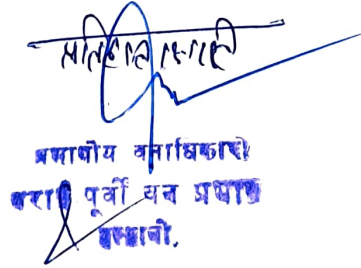 प्रतिलिपि
प्रभागीय वनाधिकारी
तराई पूर्वी वन प्रभाग
हल्द्वानी.